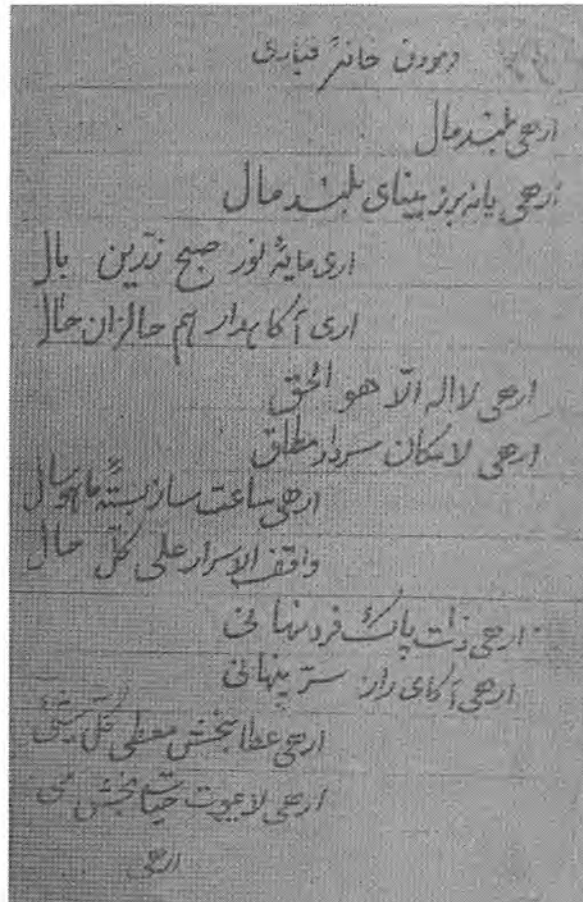 دیوون خانۀ قبادی
ارجی بلند مال
ارجی یانه برز بینای بلند مال
ارجی مایۀ نور صبح زرین بال
ارجی آکاهدار هم حالزان حال
ارجی لا اله الّا هو الحق
ارجی لامکان سردار مطلق
ارجی ساعت ساز بستۀ ماهوسال
واقف الاسرار علی کلّ حال
ارجی ذات پاک فرد
ارجی آکای راز سرّ پنهانی
ارجی عطا بخش معطی کلّ شیئی
ارجی لایموت حیات بخش
ارجی